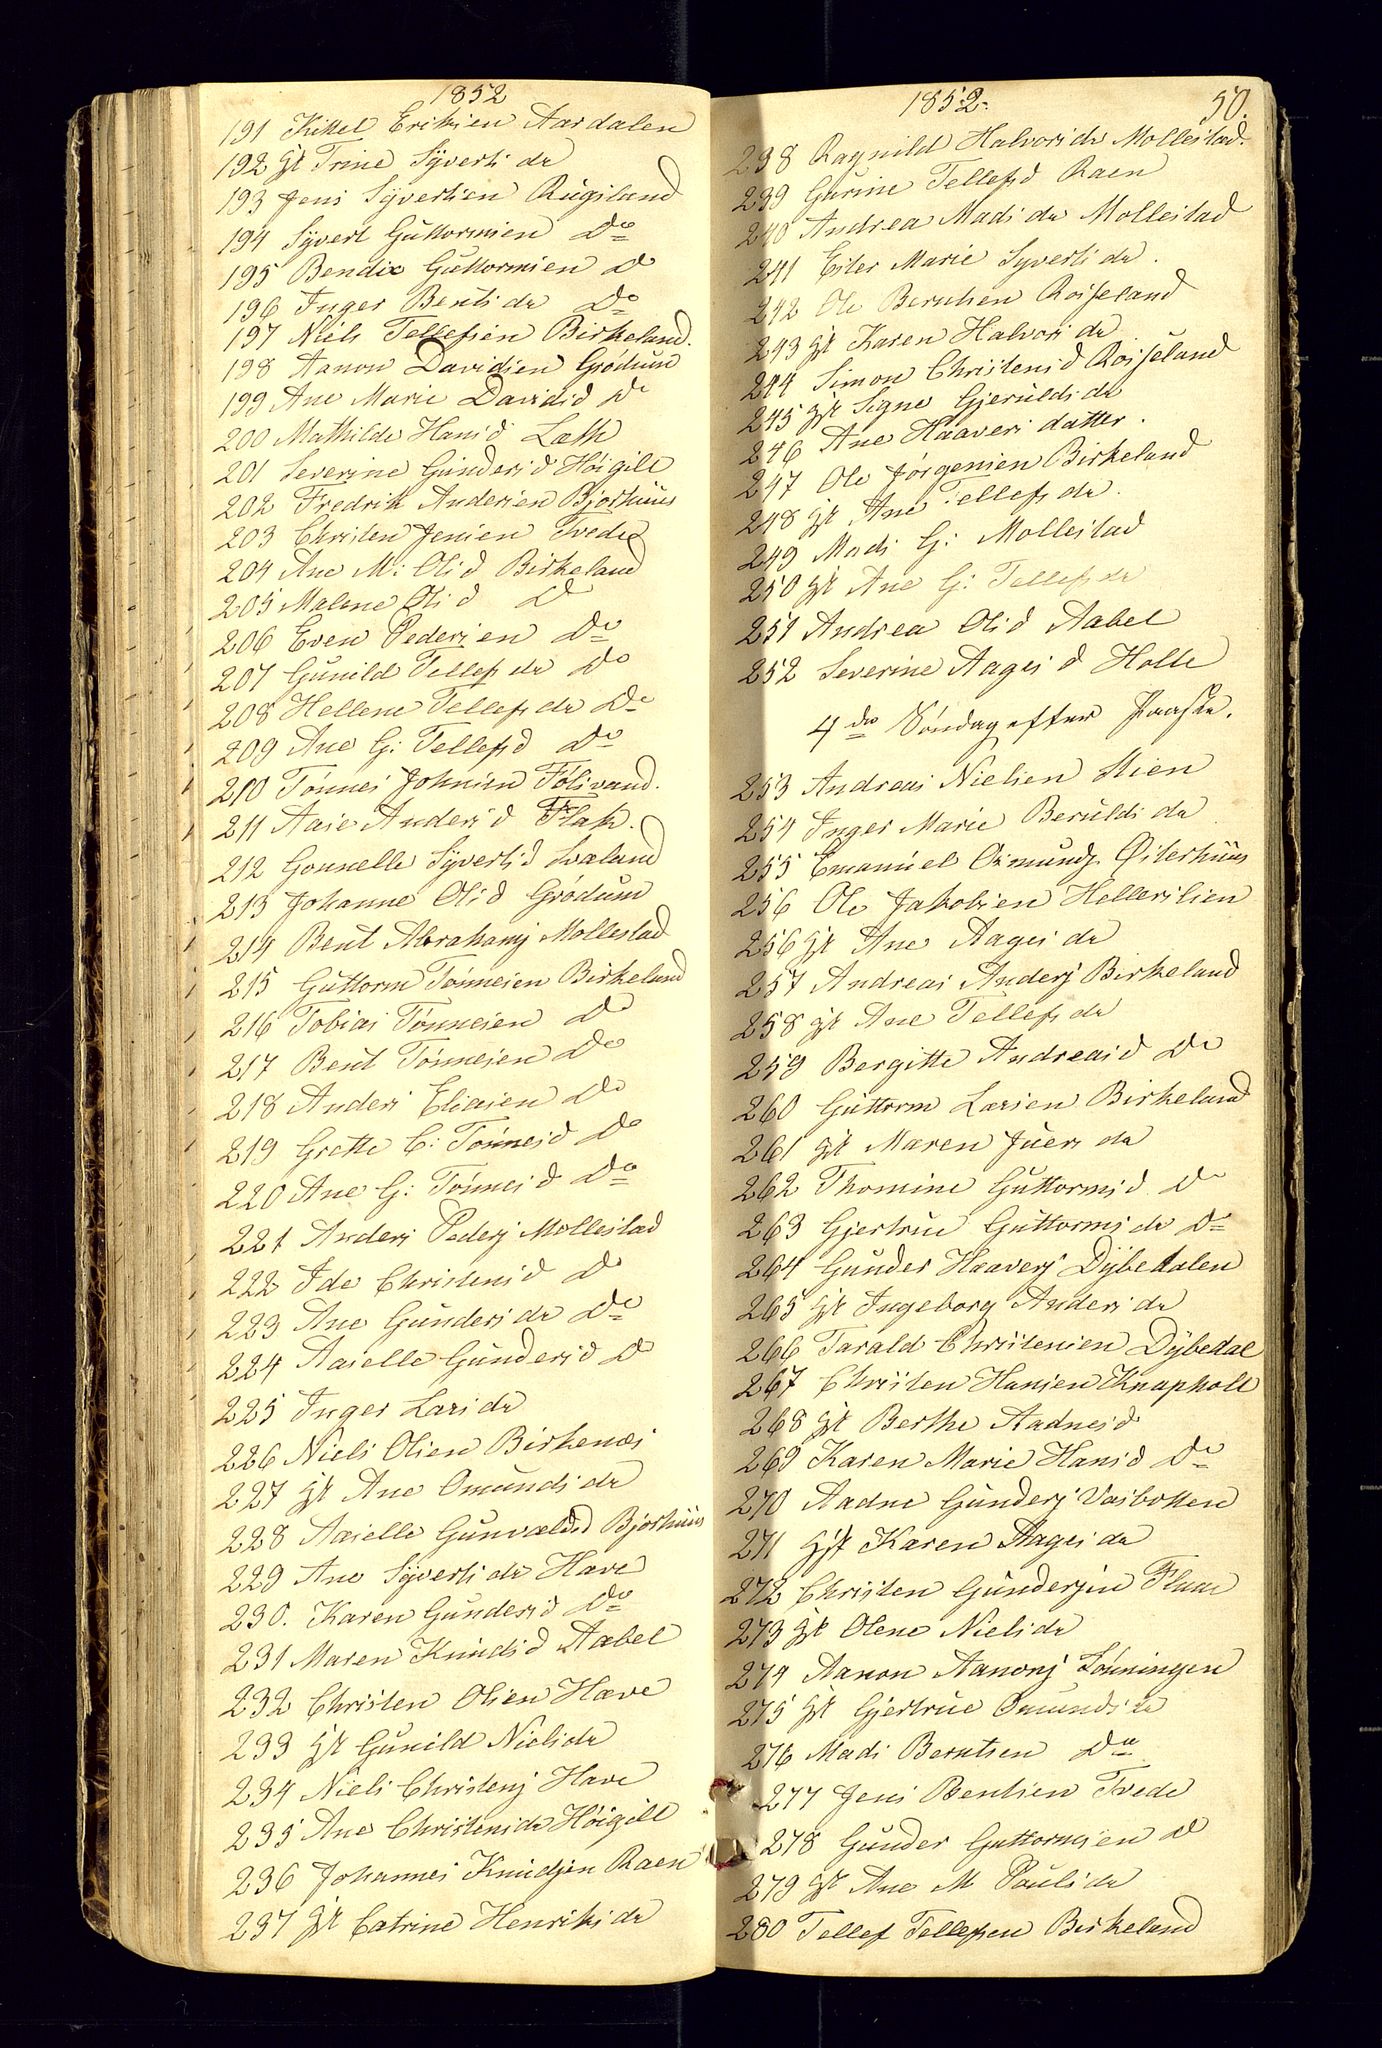 1852
191 Kittel Eriksen Aardalen
192 gt Trine Syverts da
193 Jens Syvertsen Rugsland
194 Syvert Guttormsen Do
195 Bendix Guttormsen Do
196 Inger Bents da Do
197 Niels Tellefsen Birkeland.
198 Aanon Davidsen Grödum
199 Ane Marie Davidsd Do
200 Mathilde Hansd Læth
201 Severine Gundersd Höigilt
202 Fredrik Andersen Bjorhuus
203 Christen Jensen Tvede
204 Ane M: Olsd Birkeland
205 Malene Olsd Do
206 Even Pedersen Do
207 Gunild Tellefs da Do
208 Hellene Tellefs da Do
209 Ane G: Tellefsd Do
210 Tönnes Johnsen Fölsvand.
211 Aase Andersd Flak.
212 Gonnelle Syvertsd Svaland
213 Johanne Olsd Grödum
214 Bent Abrahams Mollestad
215 Guttorm Tönnesen Birkeland
216 Tobias Tönnesen Do
217 Bent Tönnesen Do
218 Anders Eliasen Do
219 Grethe C: Tönnesd Do
220 Ane G: Tönnesd Do
221 Anders Peders Mollestad
222 Ide Christensd Do
223 Ane Gunders da Do
224 Aaselle Gundersd Do
225 Inger Lars da
226 Niels Olsen Birkenæs
227 gt Ane Omunds da
228 Aaselle Gunvaldsd Bjorhuus
229 Ane Syverts da Have
230. Karen Gundersd Do
231 Maren Knudsd Aabel
232 Christen Olsen Have
233 gt Gunild Niels da
234 Niels Christens Have
235 Ane Christens da Höigilt
236 Johannes Knudsen Raen
237 gt Catrine Henriks da
1852. 50.
238 Ragnild Halvors da Mollestad.
239 Gurine Tellefsd Raen
240 Andrea Mads da Mollestad
241 Ester Marie Syverts da.
242 Ole Berntsen Roiseland
243 gt Karen Halvors da
244 Simon Christensd Roiseland
245 gt Signe Gjerulds da
246 Ane Haavers datter.
247 Ole Jörgensen Birkeland
248 gt Ane Tellefs da.
249 Mads G: Mollestad
250 gt Ane G: Tellefs da
251 Andrea Olsd Aabel
252 Severine Aages d Holle
4de Söndag efter Paaske.
253 Andreas Nielsen Stien
254 Inger Marie Berulds da
255 Emanuel Osmunds Østerhuus
256 Ole Jakobsen Hellerslien
256 gt Ane Aages da
257 Andreas Anders Birkeland
258 gt Ane Tellefs da
259 Bergitte Andreasd Do
260 Guttorm Larsen Birkeland
261 gt Maren Juers da
262 Thomine Guttormsd Do
263 Gjertrue Guttorms da Do
264 Gunder Haavers Dÿbedalen
265 gt Ingeborg Anders da
266 Tarald Christensen Dÿbedal
267 Christen Hansen Knapholt
268 gt Berthe Aadnesd
269 Karen Marie Hansd Do
270 Aadne Gunders Vasbotten
271 gt Karen Aages da
272 Christen Gundersen Flaae
273 gt Olene Niels da
274 Aanon Aanons Lönningen
275 gt Gjertrue Omunds da
276 Mads Berntsen Do
277 Jens Bentsen Tvede
278 Gunder Guttormsen Do
279 gt Ane M Pouls da
280 Tellef Tellefsen Birkeland